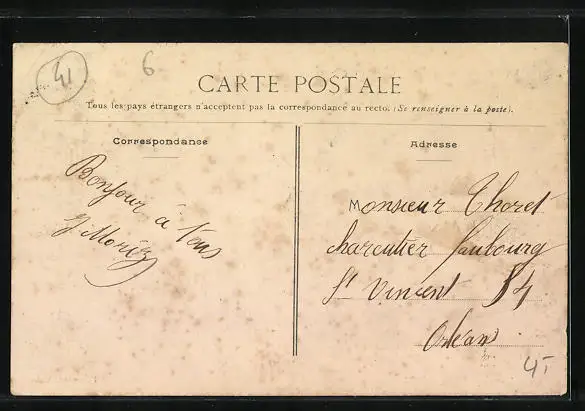 41
6
CARTE POSTALE
Tous les pays étrangers n'acceptent pas la correspondance au recto. (Se renseigner à la poste).
Correspondance
Adresse
Bonjour à Vous
Monsieur Thoret
charcutier faubourg
St Vincent 54
Orléans
4-